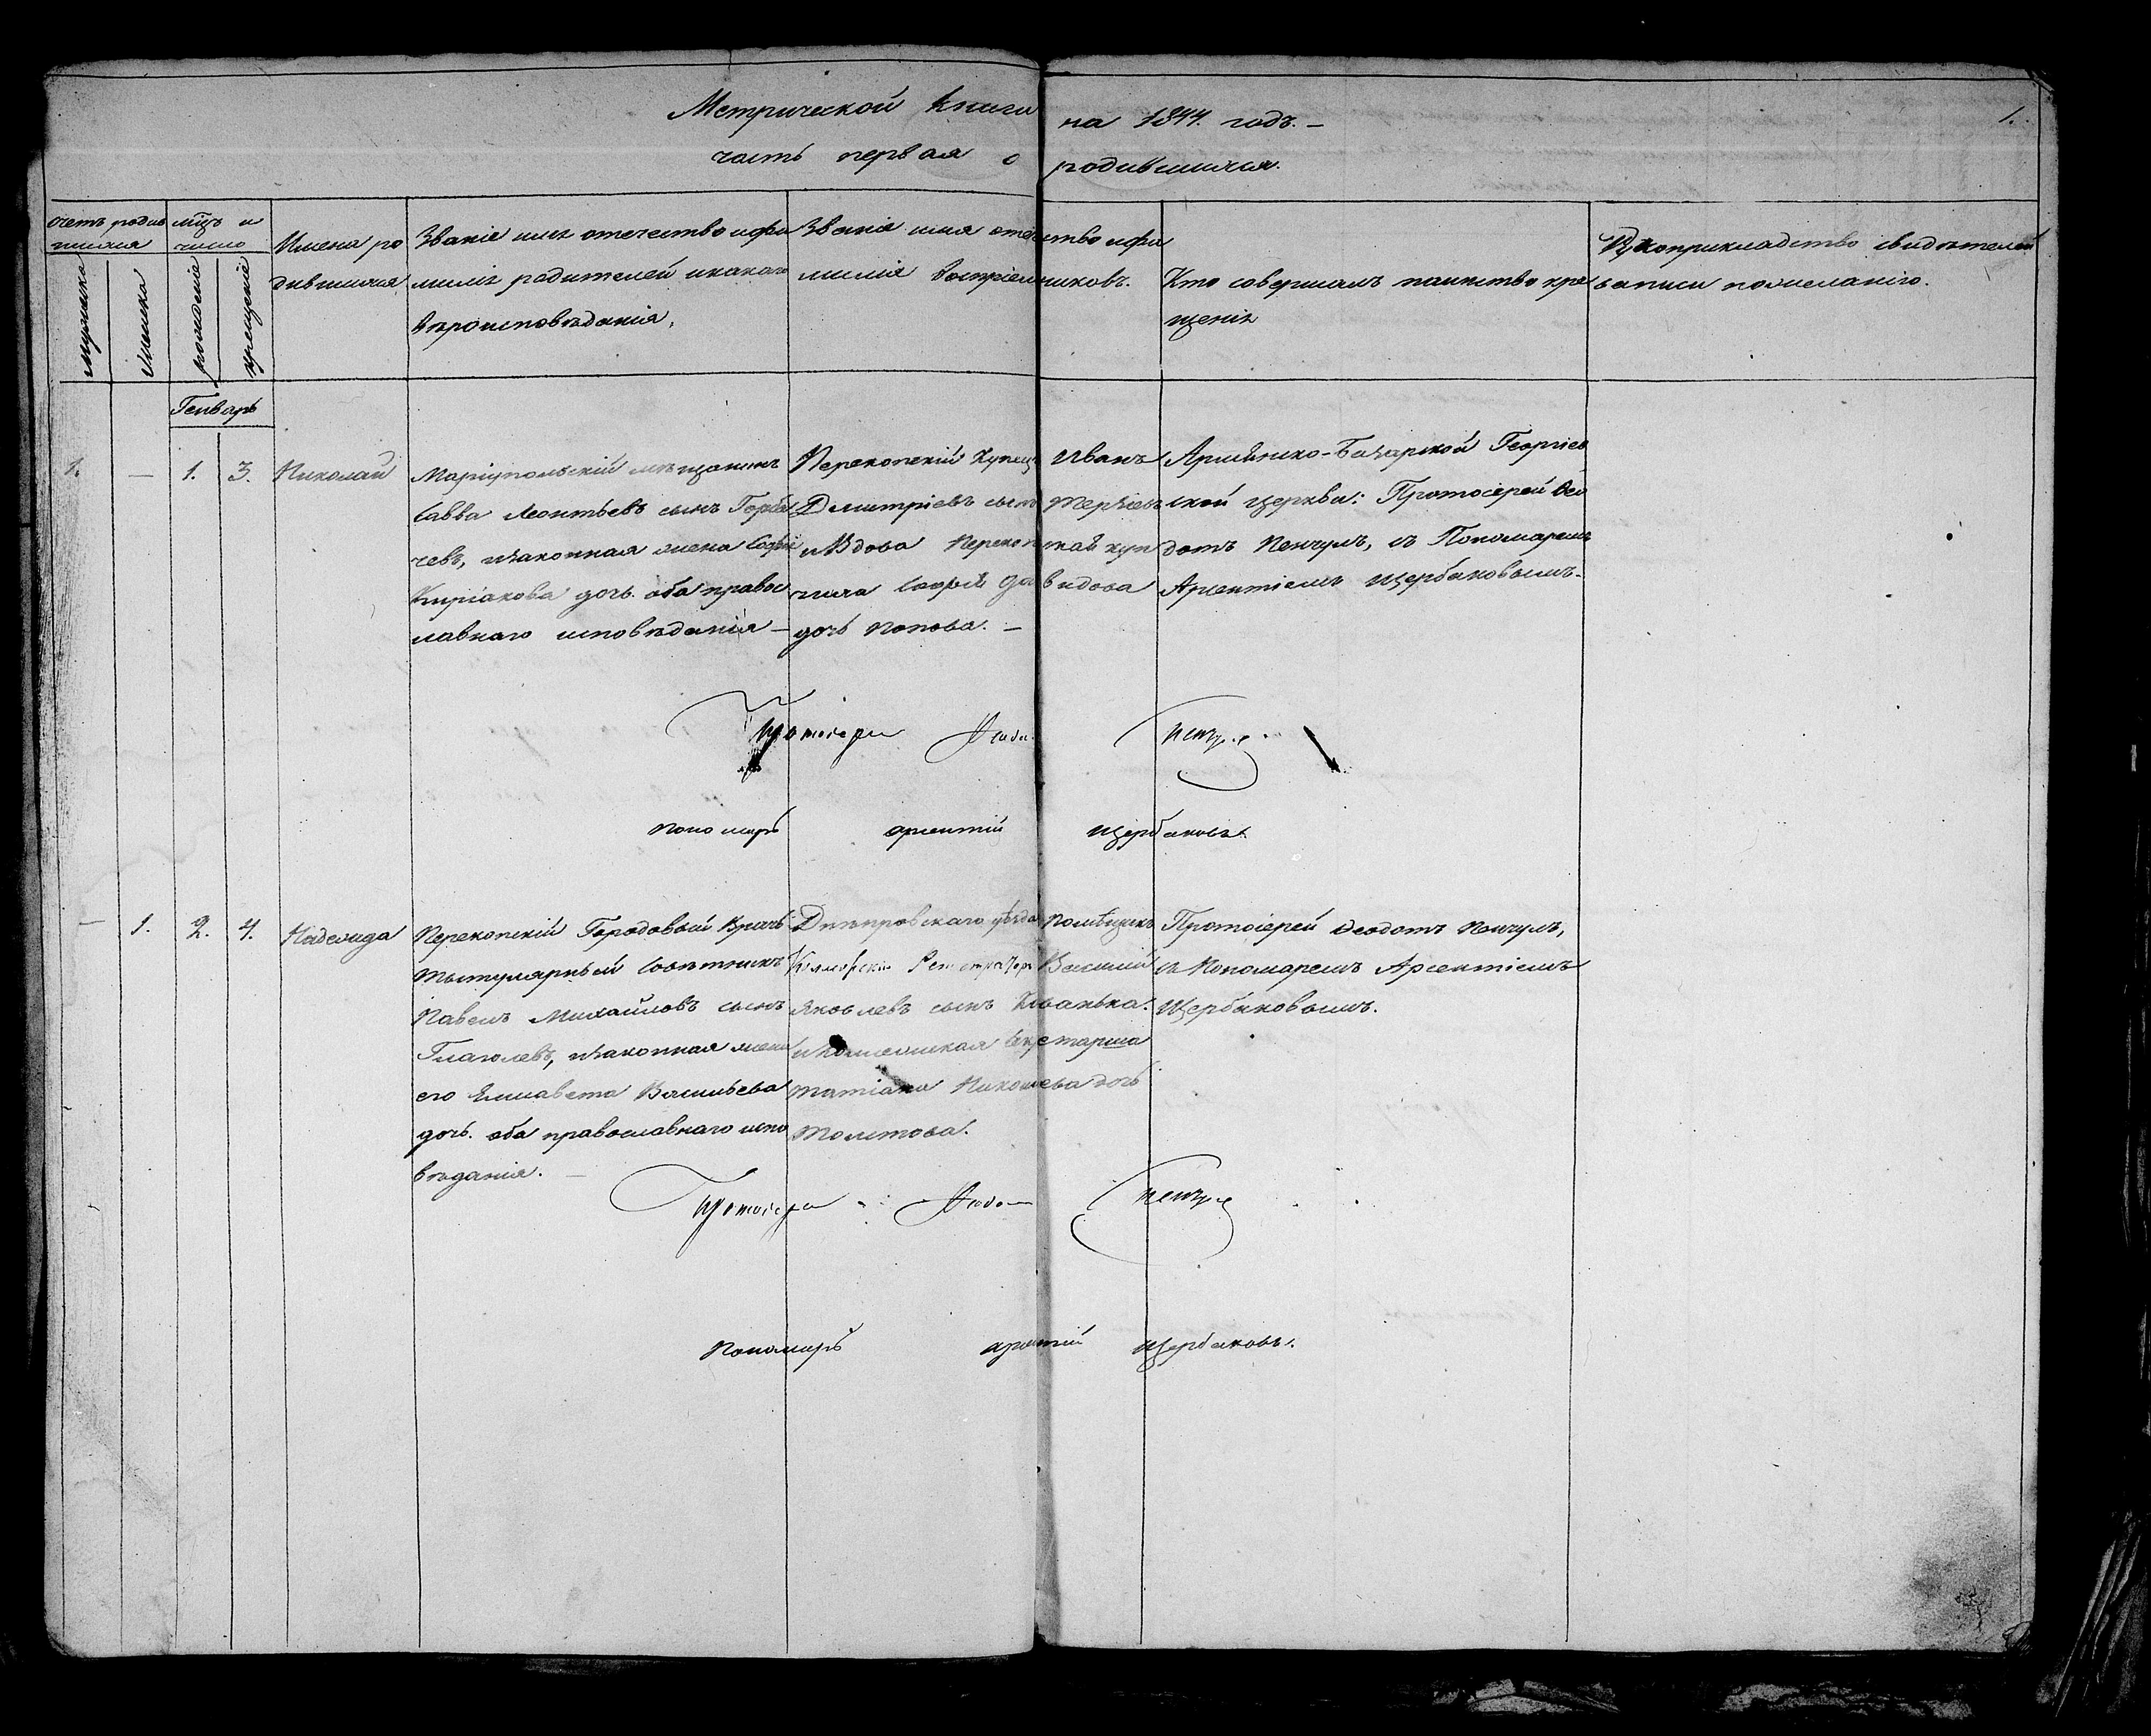 Метрической книги на 1844. годъ. –
1.
часть первая о родившихся.
счетъ родив
шихся
мужска
женска
мцъ и
число
рожденіе
крещеніе
Имена ро
дившихся
Званіе имя отечество и фа
милія родителей и какаго
вѣроисповѣданія.
Званіе имя отечество и фа
милія воспріемниковъ.
Кто совершалъ таинство кре
щенія
Рукоприкладство свидѣтелей
записи по желанію.
Генварь
1. – 1. 3. Николай
Маріупольскій мѣщанинъ
Савва Леонтьевъ сынъ Горба
чевъ, и законная жена Софія
Киріакова дочь. оба правос
лавнаго исповѣданія –
Перекопскій Купецъ Иванъ
Дмитріевъ сынъ
и Вдова Перекопская куп
чиха Софія Давидова
дочь Попова. –
Армянско-Базарской Георгіев
ской церкви: Протоіерей Ѳео
дотъ Пенчулъ, съ Пономаремъ
Арсентіемъ Щербаковымъ.
Протоіерей Ѳеодотъ Пенчулъ
Пономарь Арсентій Щербаковъ.
– 1. 2. 4. Надежда
Перекопскій Городовый Врачь
Тытулярный Совѣтникъ
Павелъ Михайловъ сынъ
Глаголевъ, и законная жена
его Елисавета Васильева
дочь. оба православнаго испо
вѣданія. –
Днѣпровскаго уѣзда Помѣщикъ
Коллежскій Регистраторъ Василій
Яковлевъ сынъ
и Коллежская Секретарша
Татіана Николаева дочь
Толстова.
Протоіерей Ѳеодотъ Пенчулъ,
съ Пономаремъ Арсентіемъ
Щербаковымъ.
Протоіерей Ѳеодотъ Пенчулъ
Пономарь Арсентій Щербаковъ.